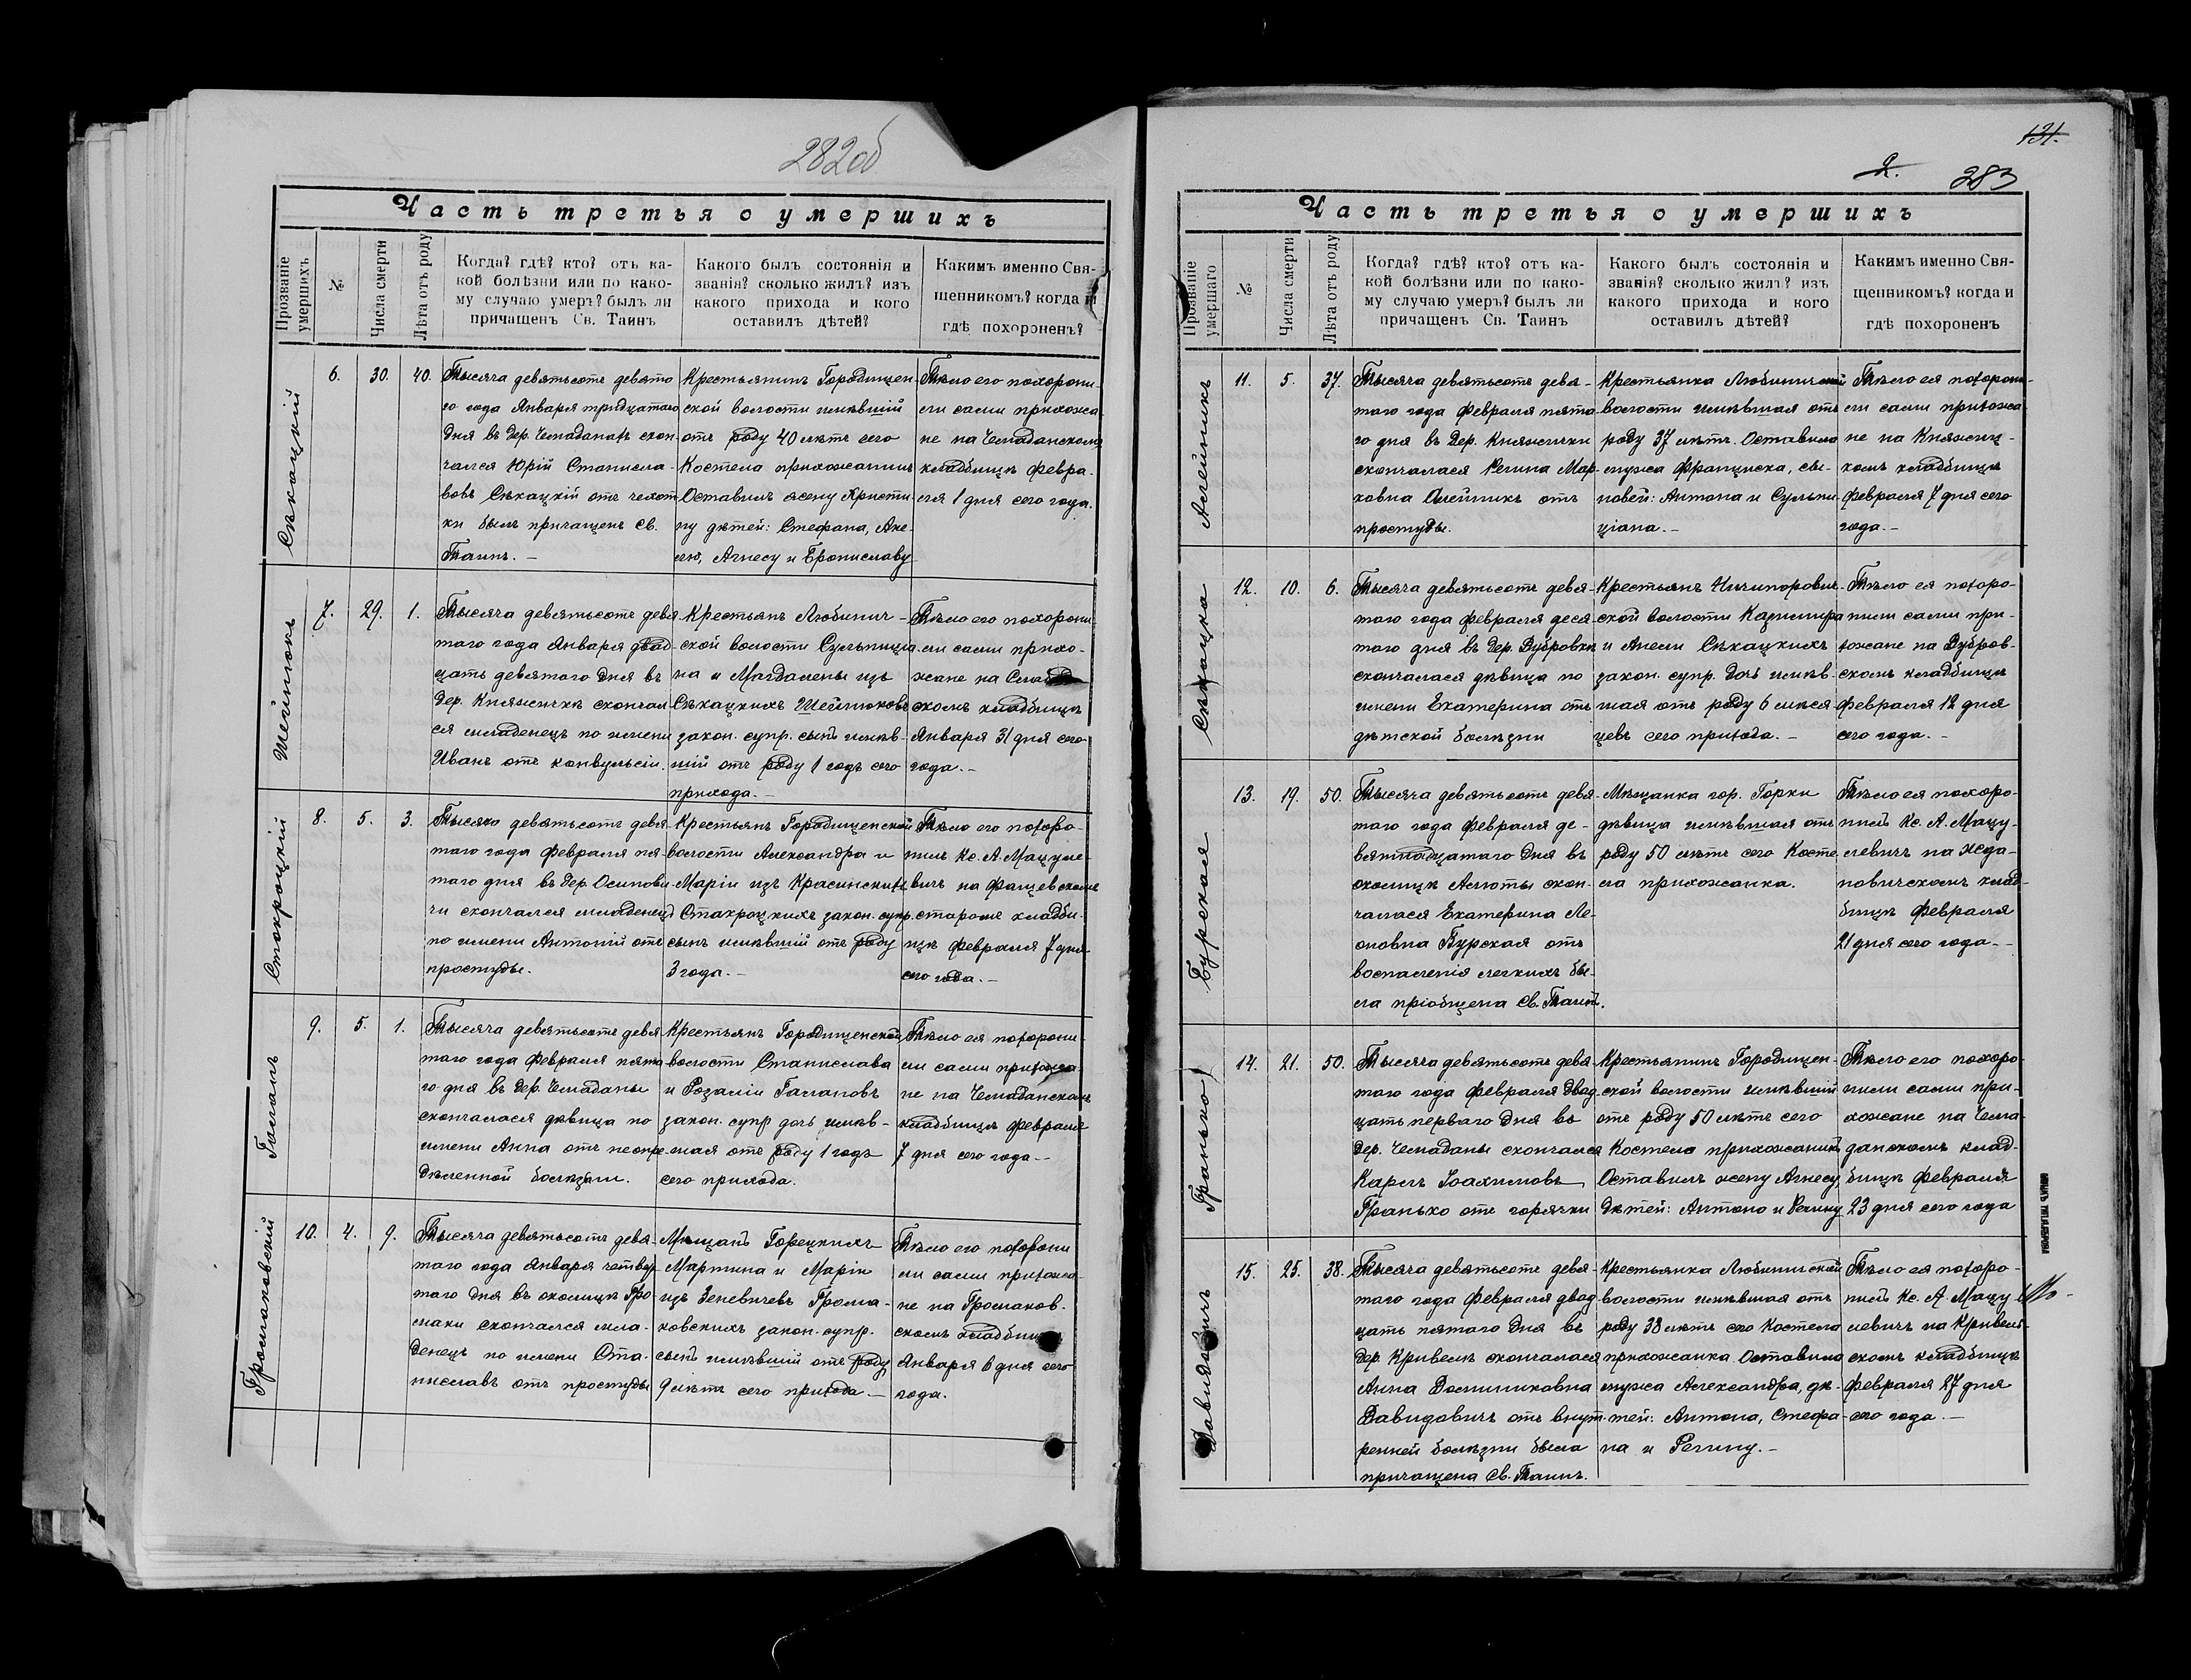 282об
Часть третья о умершихъ
Прозваніе умершихъ
№
Числа смерти
Лѣта отъ роду
Когда? гдѣ? кто? отъ ка-
кой болѣзни или по како-
му случаю умеръ? былъ ли
причащенъ Св. Таинъ
Какого былъ состоянія и
званія? сколько жилъ? изъ
какого прихода и кого
оставилъ дѣтей?
Какимъ именно Свя-
щенникомъ? когда и
гдѣ похороненъ?
Сѣкацкій
6.
30.
40.
Тысяча девятьсотъ девято
го года Января тридцатаго
дня въ дер. Чемаданахъ скон-
чался Юрій Станисла-
вовъ Сѣкацкій отъ чехот
ки былъ причащенъ Св.
Таинъ. –
Крестьянинъ Городищен-
ской волости имѣвшій
отъ роду 40 лѣтъ сего
Костела прихожанинъ
Оставилъ жену Кристи-
ну дѣтей: Стефана, Ане-
лю, Агнесу и Брониславу
Тѣло его похорони-
ли сами прихожа-
не на Чемаданскомъ
кладбищѣ февра-
ля 1 дня сего года.
Шейнюкъ
7.
29.
1.
Тысяча девятьсотъ девя
таго года Января двад-
цать девятаго дня въ
дер. Княжичкѣ скончал
ся младенецъ по имени
Иванъ отъ конвульсіи.
Крестьянъ Любинич-
ской волости Сульпиція
на и Магдалены изъ
Сѣкацкихъ Шейнюковъ
закон. супр. сынъ имѣв-
шій отъ роду 1 годъ сего
прихода. –
Тѣло его похорони
ли сами прихо-
жане на
скомъ кладбищѣ
Января 31 дня сего
года. –
Стокроцкій
8.
5.
3.
Тысяча девятьсотъ девя-
таго года февраля пя-
таго дня въ дер. Осипови-
чи скончался младенецъ
по имени Антоній отъ
простуды.
Крестьянъ Городищенской
волости Александра и
Маріи изъ Красинскихъ
Стакроцкихъ закон. супр.
сынъ имѣвшій отъ роду
3 года. –
Тѣло его похоро-
нилъ Кс. А. Мацуле-
вичъ на Фащевскомъ
старомъ кладби-
щѣ февраля 7 дня
сего года. –
Гаманъ
9.
5.
1.
Тысяча девятьсотъ девя
таго года февраля пята
го дня въ дер. Чемаданы
скончалася дѣвица по
имени Анна отъ неопре
дѣленной болѣзни.
Крестьянъ Городищенской
волости Станислава
и Розаліи Гамановъ
закон. супр дочь имѣв-
шая отъ роду 1 годъ
сего прихода.
Тѣло ея похорони
ли сами прихожа-
не на Чемаданскомъ
кладбищѣ февраля
7 дня сего года –
Громаковскій
10.
4.
9.
Тысяча девятьсотъ девя-
таго года Января четвер
таго дня въ околицѣ Гро
маки скончался мла-
денецъ по имени Ста-
ниславъ отъ простуды
Мѣщанъ Горецкихъ
Мартина и Маріи
изъ Зеневичевъ Грома-
ковскихъ закон. супр.
сынъ имѣвшій отъ роду
9 лѣтъ сего прихода. –
Тѣло его похорони
ли сами прихожа-
не на Громаков-
скомъ кладбищѣ
Января 6 дня сего
года.
131.
2.
283
Часть третья о умершихъ
Прозваніе умершаго
№
Числа смерти
Лѣта отъ роду
Когда? гдѣ? кто? отъ ка-
кой болѣзни или по како-
му случаю умеръ? былъ ли
причащенъ Св. Таинъ
Какого былъ состоянія и
званія? сколько жилъ? изъ
какого прихода и кого
оставилъ дѣтей?
Какимъ именно Свя-
щенникомъ? когда и
гдѣ похороненъ
Алейникъ
11.
5.
37.
Тысяча девятьсотъ девя-
таго года февраля пята
го дня въ дер. Княжички
скончалася Регина Мар-
ковна Олейникъ отъ
простуды.
Крестьянка Любиничской
волости имѣвшая отъ
роду 37 лѣтъ. Оставила
мужа Франциска, сы-
новей: Антона и Сульпи
ціана. –
Тѣло ея похорони-
ли сами прихожа-
не на Княжиц-
комъ кладбищѣ
февраля 7 дня сего
года. –
Сѣкацкая
12.
10.
6.
Тысяча девятьсотъ девя-
таго года февраля деся
таго дня въ дер. Дубровкѣ
скончалася дѣвица по
имени Екатерина отъ
дѣтской болѣзни
Крестьянъ Ничипорович-
ской волости Казимира
и Анели Сѣкацкихъ
закон. супр. дочь имѣв-
шая отъ роду 6 мѣся-
цевъ сего прихода. –
Тѣло ея похоро-
нили сами при-
хожане на Дубров-
скомъ кладбищѣ
февраля 12 дня
сего года. –
Бурская
13.
19.
50.
Тысяча девятьсотъ девя
таго года февраля де-
вятнадцатаго дня въ
околицѣ Аслюты скон-
чалася Екатерина Ле-
оновна Бурская отъ
воспаленія легкихъ бы-
ла пріобщена Св. Таинъ.
Мѣщанка гор. Горки
дѣвица имѣвшая отъ
роду 50 лѣтъ сего Косте
ла прихожанка.
Тѣло ея похоро-
нилъ Кс. А. Мацу-
левичъ на Жда-
новичскомъ клад-
бищѣ февраля
21 дня сего года. –
Гранько
14.
21.
50.
Тысяча девятьсотъ девя-
таго года февраля двад
цать перваго дня въ
дер. Чемаданы скончался
Карлъ Іоахимовъ
Гранько отъ горячки
Крестьянинъ Городищен-
ской волости имѣвшій
отъ роду 50 лѣтъ сего
Костела прихожанинъ
Оставилъ жену Агнесу,
дѣтей: Антона и Регину
Тѣло его похоро-
нили сами при-
хожане на Чема-
данскомъ клад-
бищѣ февраля
23 дня сего года
Давидовичъ
15.
25.
38.
Тысяча девятьсотъ девя-
таго года февраля двад
цать пятаго дня въ
дер. Кривелѣ скончалася
Анна Доминиковна
Давидовичъ отъ внут-
ренней болѣзни была
причащена Св. Таинъ.
Крестьянка Любиничской
волости имѣвшая отъ
роду 38 лѣтъ сего Костела
прихожанка. Оставила
мужа Александра, дѣ-
тей: Антона, Стефа-
на и Регину. –
Тѣло ея похоро-
нилъ Кс. А. Мацу-
левичъ на Кривель-
скомъ кладбищѣ
февраля 27 дня
сего года. –